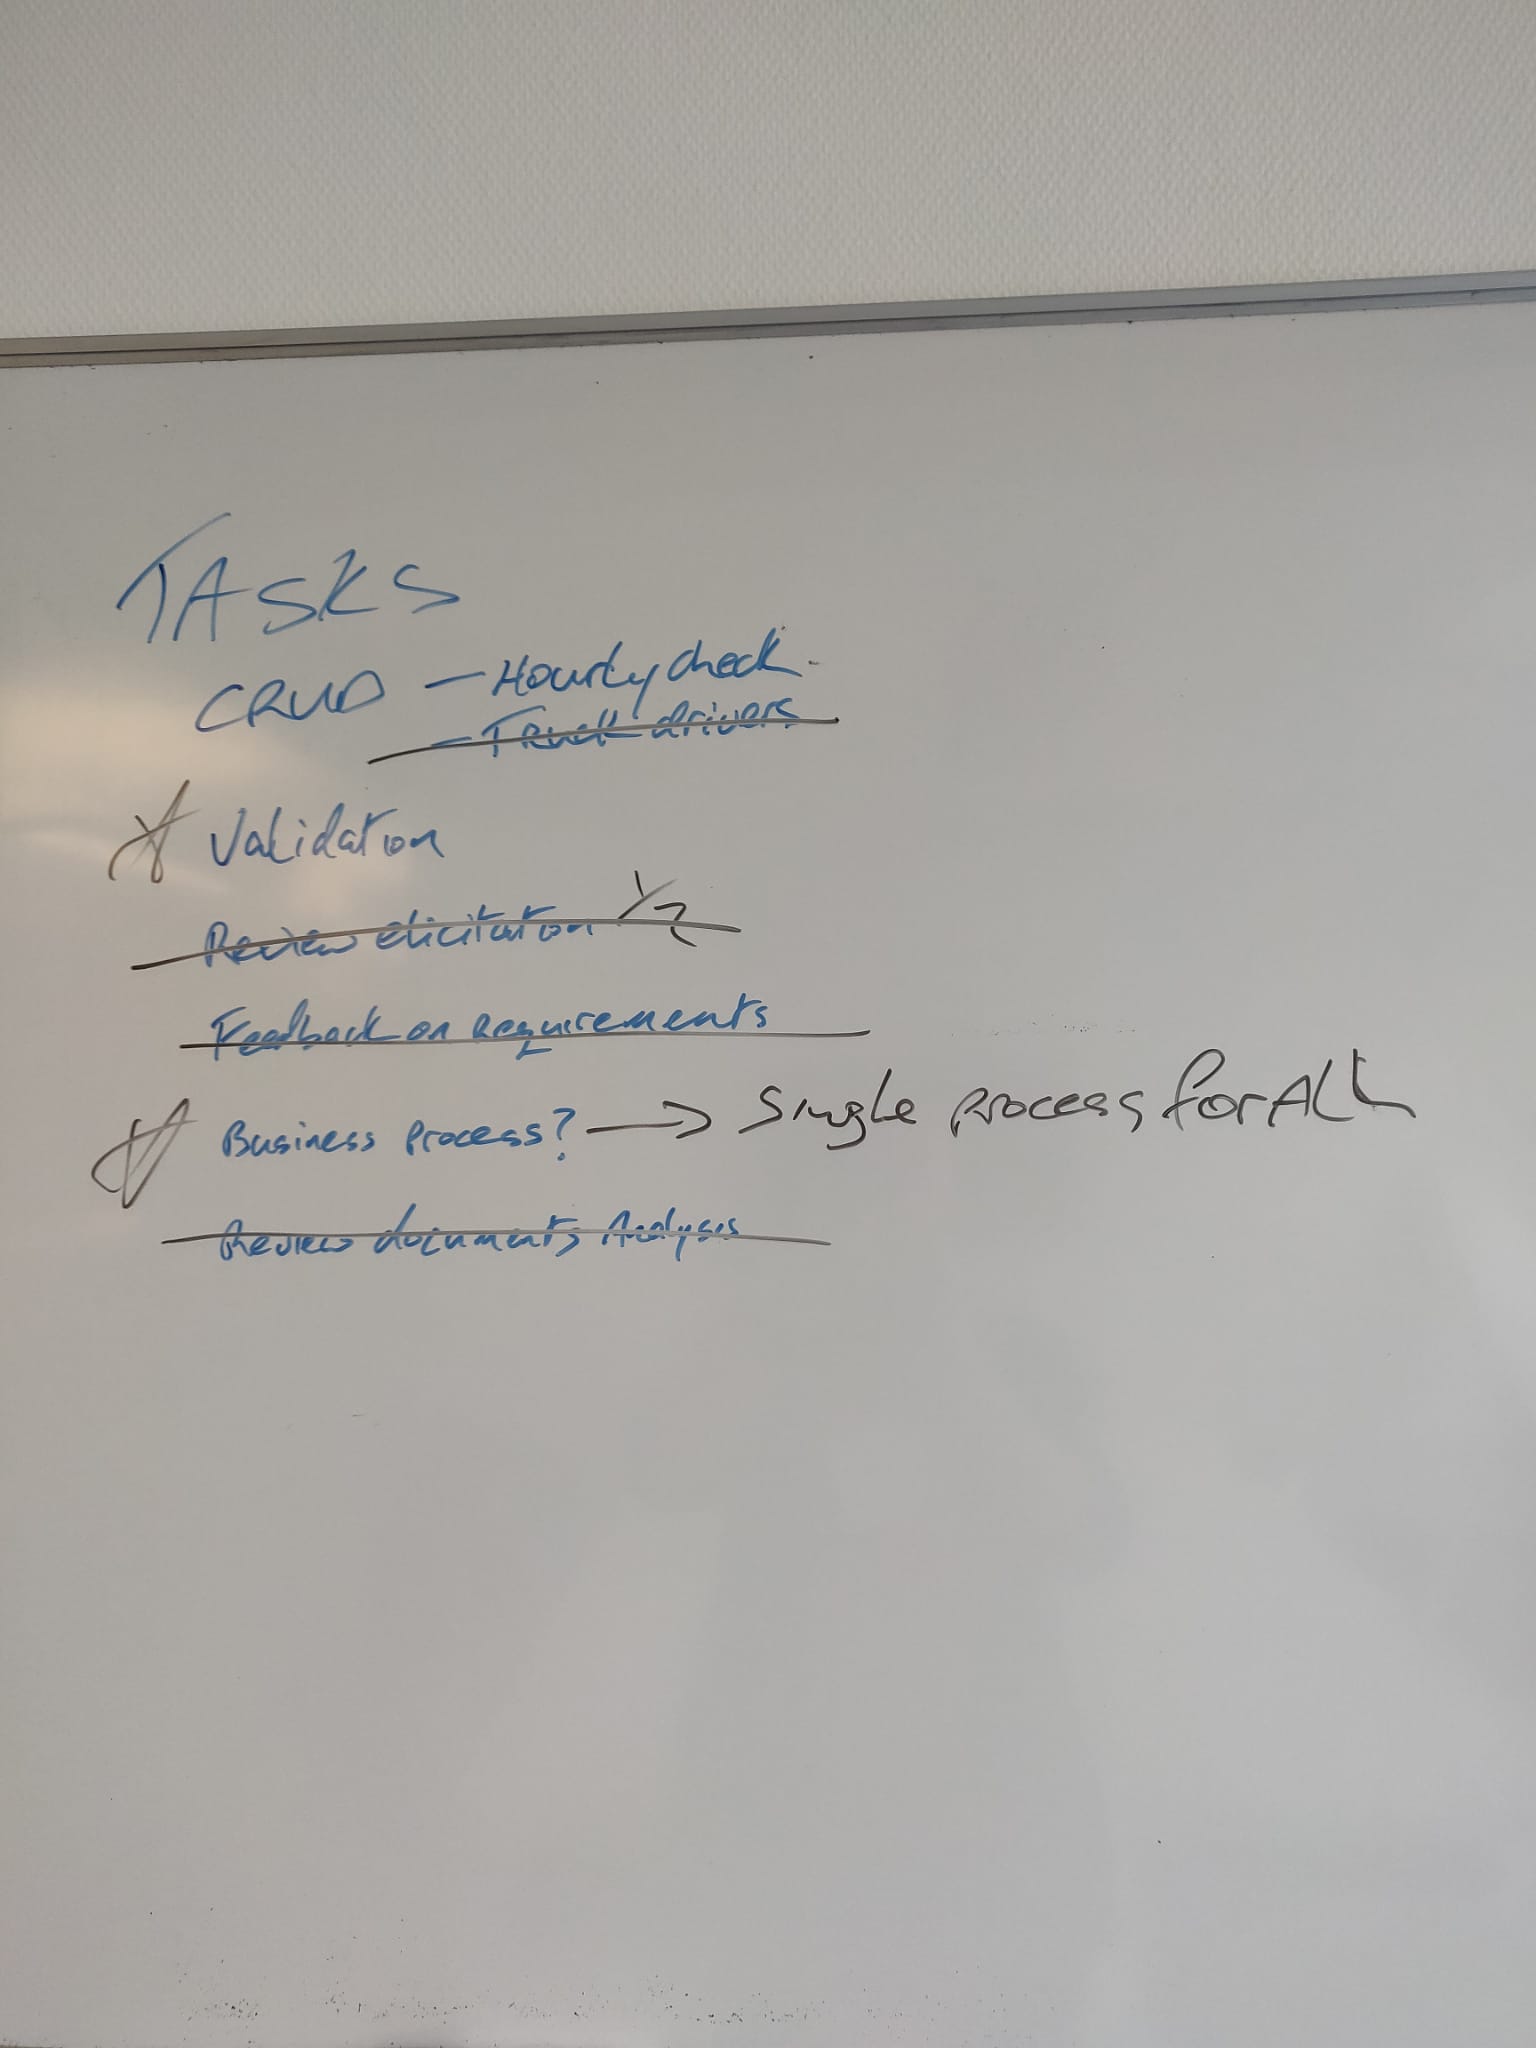 TASKS
CRUD - Hourly check
- Truck drivers
Validation
Review elicitation 1/2
Feedback on Requirements
Business Process? → Single Process for ALL
Review documents Analysis